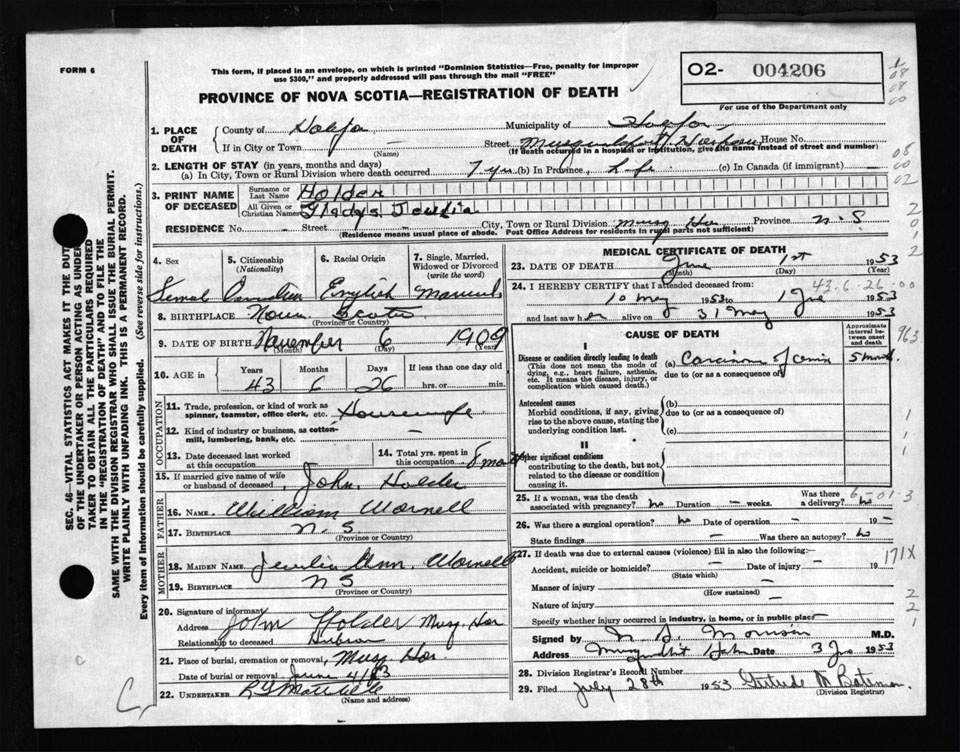 FORM 6
This form, if placed in an envelope, on which is printed "Dominion Statistics—Free, penalty for improper
use $300," and properly addressed will pass through the mail "FREE"
PROVINCE OF NOVA SCOTIA—REGISTRATION OF DEATH
O2- 004206
For use of the Department only
1. PLACE OF DEATH
County of Halifax Municipality of Halifax
If in City or Town — (Name) Street Musquodoboit Harbour House No.
(If death occurred in a hospital or institution, give the name instead of street and number)
2. LENGTH OF STAY (in years, months and days)
(a) In City, Town or Rural Division where death occurred 7 yrs (b) In Province Life (c) In Canada (if immigrant) —
3. PRINT NAME OF DECEASED
Surname or Last Name Holder
All Given or Christian Names Gladys
RESIDENCE No. — Street — City, Town or Rural Division Musq Hr Province N.S.
(Residence means usual place of abode. Post Office Address for residents in rural parts not sufficient)
4. Sex 5. Citizenship (Nationality) 6. Racial Origin 7. Single, Married, Widowed or Divorced (write the word)
Female Canadian English Married
8. BIRTHPLACE Nova Scotia
(Province or Country)
9. DATE OF BIRTH November 6 1909
(Month) (Day) (Year)
10. AGE in Years Months Days If less than one day old
43 6 26 hrs. or min.
OCCUPATION
11. Trade, profession, or kind of work as spinner, teamster, office clerk, etc. Housewife
12. Kind of industry or business, as cotton-mill, lumbering, bank, etc. —
13. Date deceased last worked at this occupation
14. Total yrs. spent in this occupation
15. If married give name of wife or husband of deceased John Holder
FATHER
16. NAME William Wornell
17. BIRTHPLACE N.S.
(Province or Country)
MOTHER
18. MAIDEN NAME Ann Wornell
19. BIRTHPLACE N S
(Province or Country)
20. Signature of informant John Holder
Address Musq. Hr
Relationship to deceased Husband
21. Place of burial, cremation or removal, Musq. Hr.
Date of burial or removal June 4/53
22. UNDERTAKER
(Name and address)
MEDICAL CERTIFICATE OF DEATH
23. DATE OF DEATH June 1st 1953
(Month) (Day) (Year)
43-6-26-00
24. I HEREBY CERTIFY that I attended deceased from:
10 May 1953 to 1 June 1953
and last saw her alive on 31 May 1953
CAUSE OF DEATH
Approximate interval between onset and death
I
Disease or condition directly leading to death
(This does not mean the mode of dying, e.g., heart failure, asthenia, etc. It means the disease, injury, or complication which caused death.)
(a) Carcinoma of Cervix 5 months
due to (or as a consequence of)
Antecedent causes
Morbid conditions, if any, giving rise to the above cause, stating the underlying condition last.
(b)
due to (or as a consequence of)
(c)
II
Other significant conditions
contributing to the death, but not related to the disease or condition causing it.
25. If a woman, was the death associated with pregnancy? no Duration — weeks. Was there a delivery? no
26. Was there a surgical operation? no Date of operation — 19 —
State findings — Was there an autopsy? no
27. If death was due to external causes (violence) fill in also the following:—
Accident, suicide or homicide? — Date of injury — 19
(State which)
Manner of injury —
(How sustained)
Nature of injury —
Specify whether injury occurred in industry, in home, or in public place —
Signed by Morrison M.D.
Address Musquodoboit Hbr Date 3 June 1953
28. Division Registrar's Record Number
29. Filed July 28th 1953 Gertrude M Bateman
(Division Registrar)
171X
963
SEC. 46—VITAL STATISTICS ACT MAKES IT THE DUTY
OF THE UNDERTAKER OR PERSON ACTING AS UNDER-
TAKER TO OBTAIN ALL THE PARTICULARS REQUIRED
IN THE "REGISTRATION OF DEATH" AND TO FILE THE
SAME WITH THE DIVISION REGISTRAR WHO SHALL ISSUE THE BURIAL PERMIT.
WRITE PLAINLY WITH UNFADING INK. THIS IS A PERMANENT RECORD.
Every item of information should be carefully supplied. (See reverse side for instructions.)